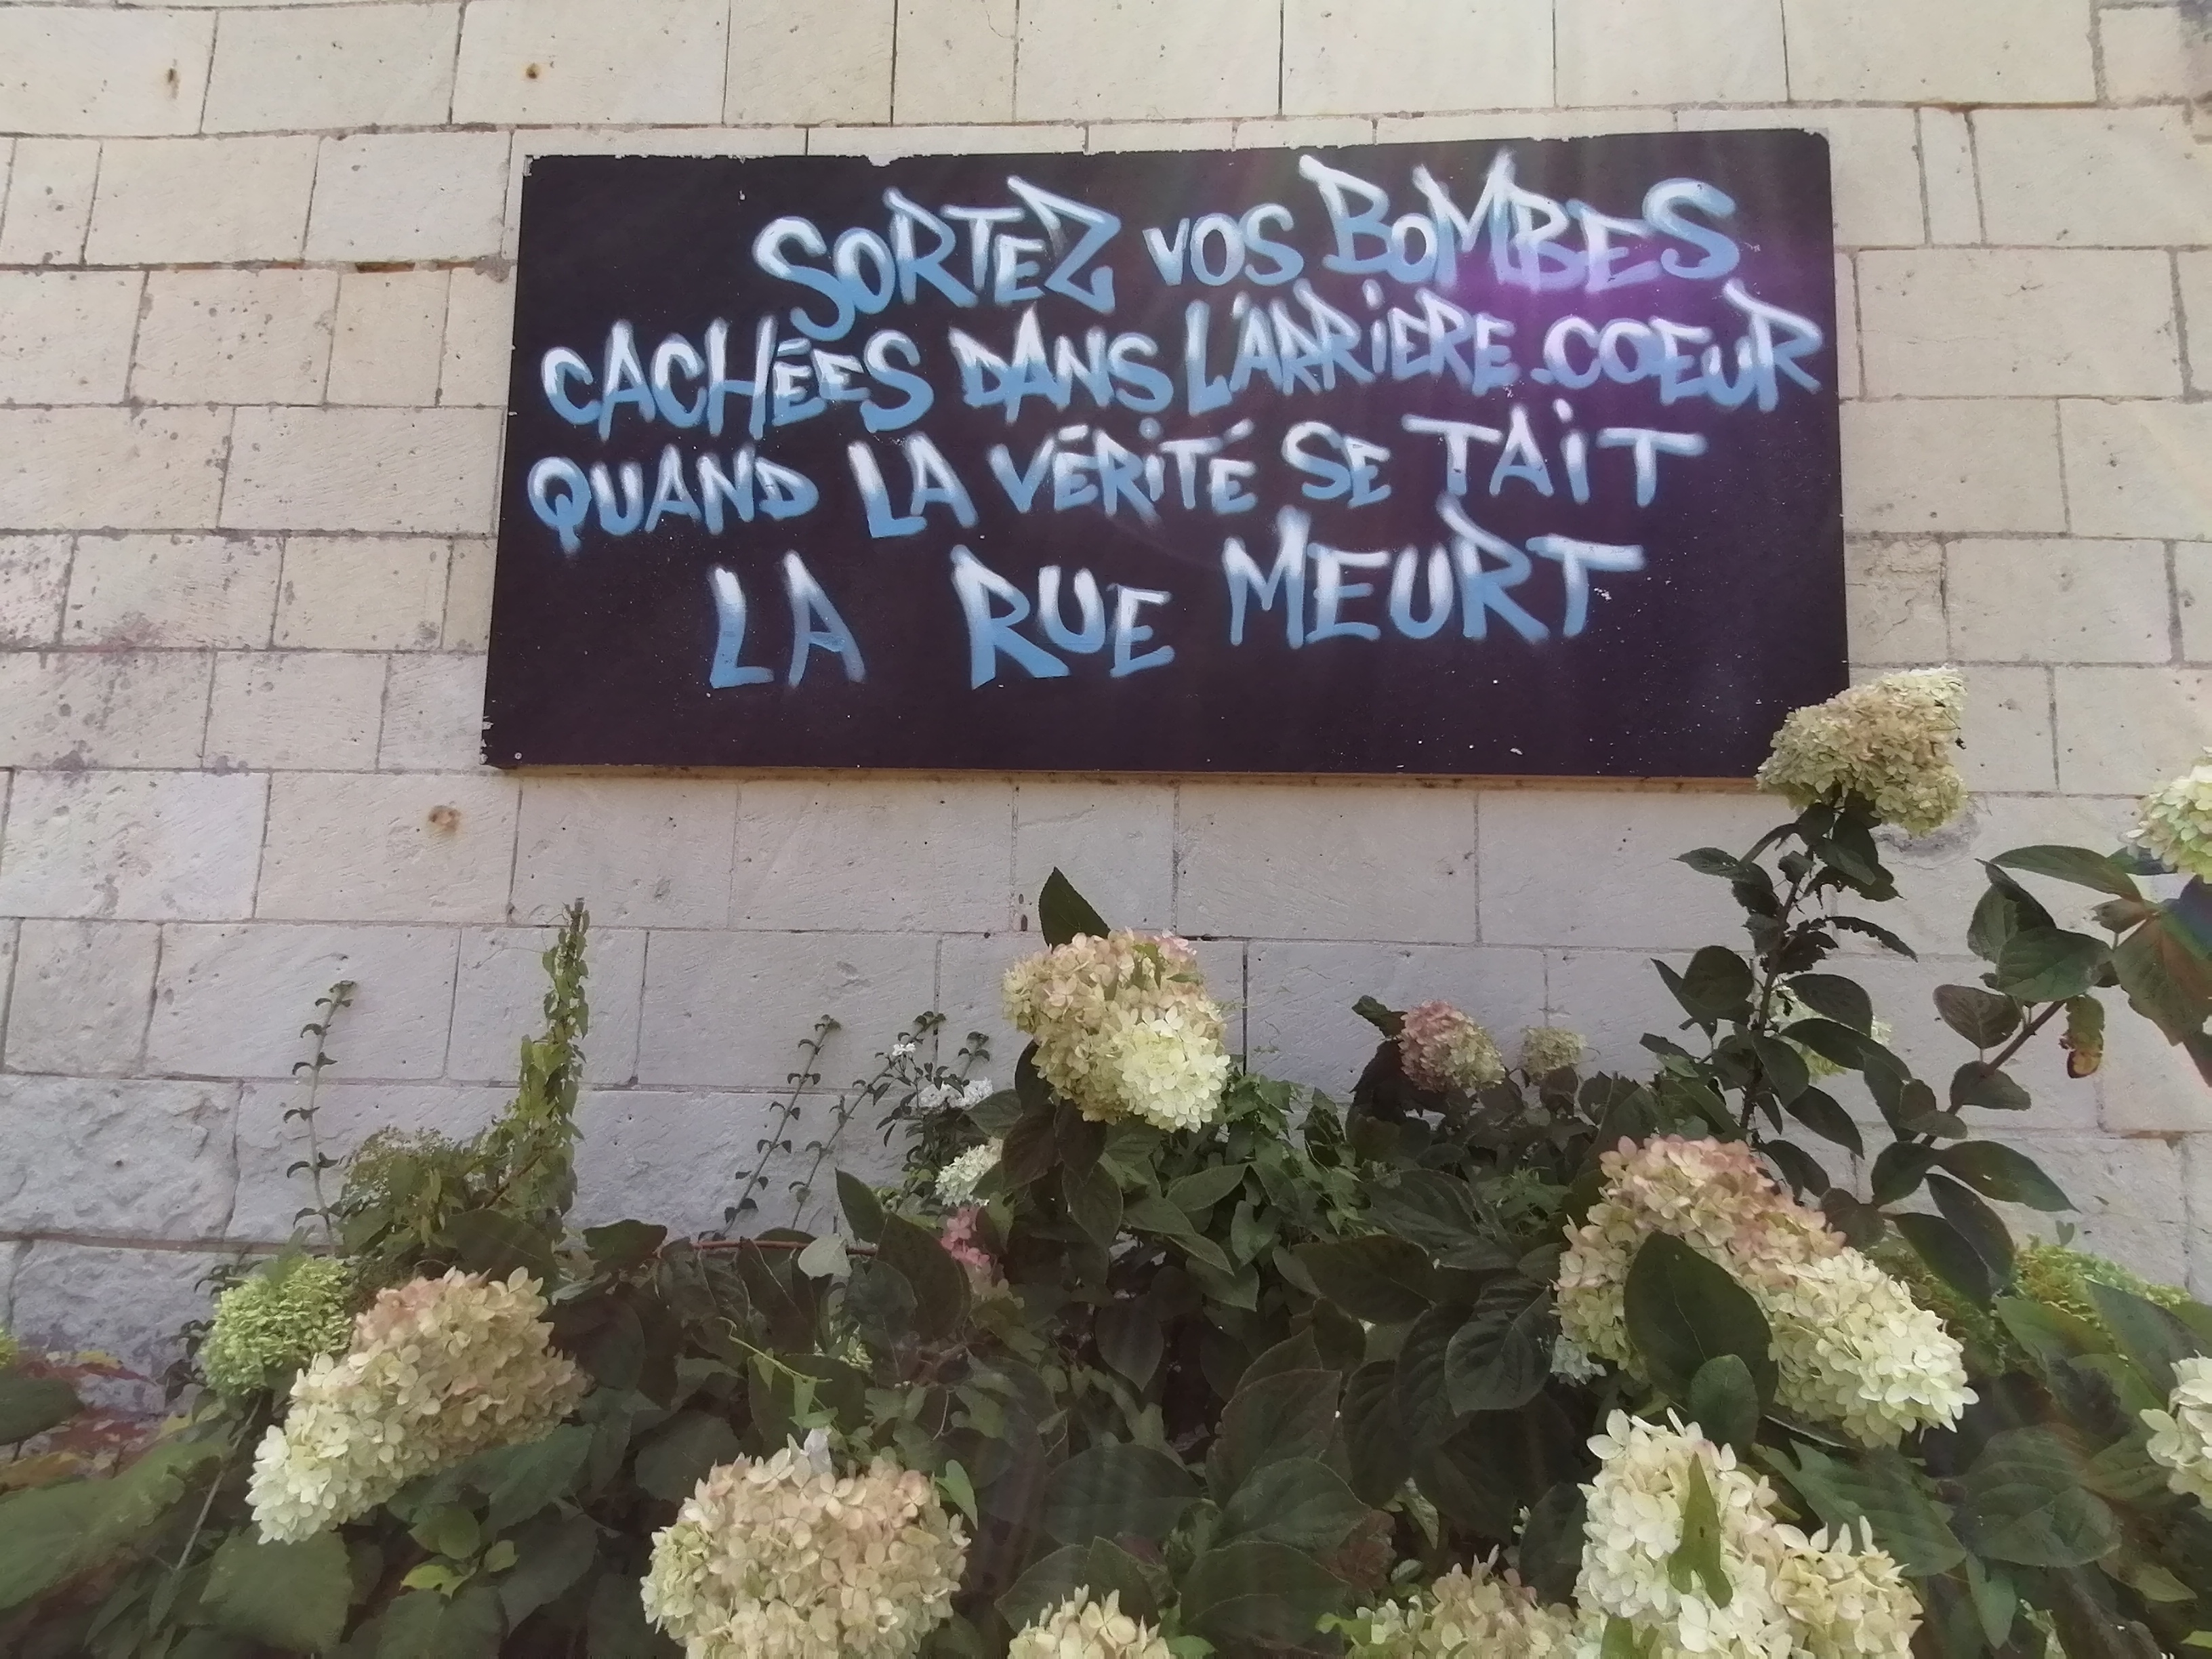 SORTEZ VOS BOMBES
CACHÉES DANS L'ARRiERE-COEUR
QUAND LA VÉRiTÉ SE TAiT
LA RUE MEURT